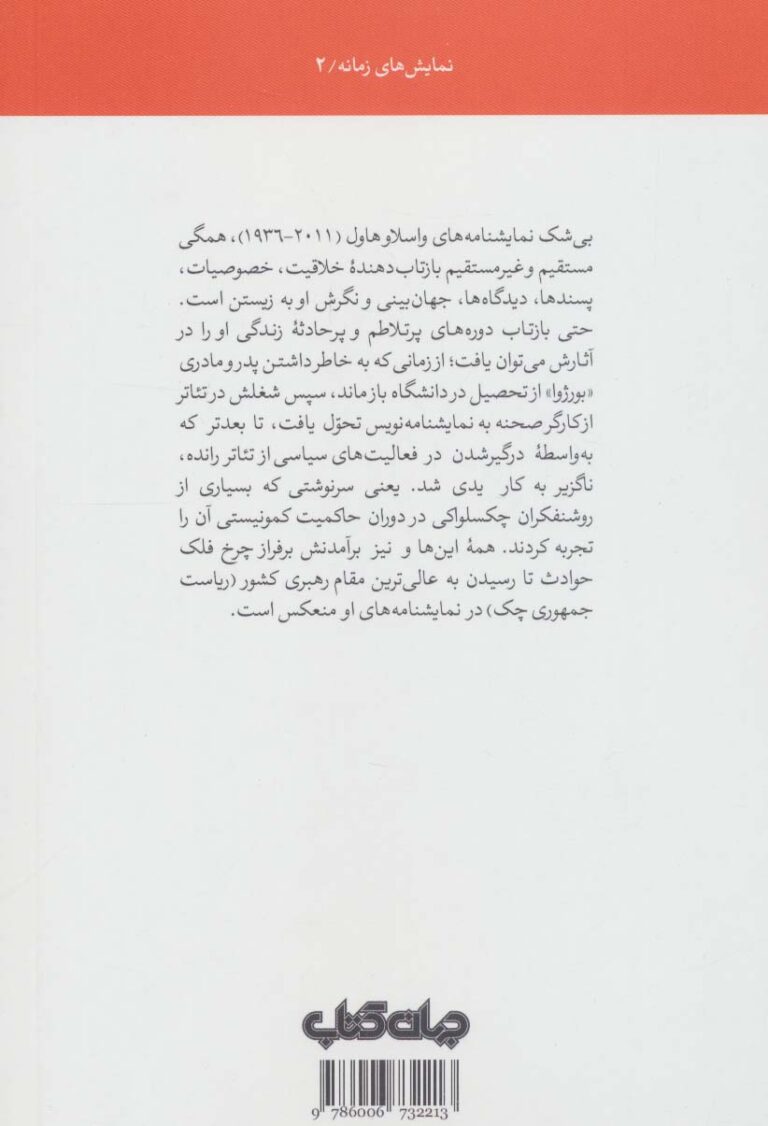 نمایش‌های زمانه/۲
بی‌شک نمایشنامه‌های واسلاو هاول (۲۰۱۱-۱۹۳۶)، همگی
مستقیم و غیرمستقیم بازتاب‌دهندهٔ خلاقیت، خصوصیات،
پسندها، دیدگاه‌ها، جهان‌بینی و نگرش او به زیستن است.
حتی بازتاب دوره‌های پرتلاطم و پرحادثهٔ زندگی او را در
آثارش می‌توان یافت؛ از زمانی که به خاطر داشتن پدر و مادری
«بورژوا» از تحصیل در دانشگاه بازماند، سپس شغلش در تئاتر
از کارگر صحنه به نمایشنامه‌نویس تحوّل یافت، تا بعدتر که
به‌واسطهٔ درگیرشدن در فعالیت‌های سیاسی از تئاتر رانده،
ناگزیر به کار یدی شد. یعنی سرنوشتی که بسیاری از
روشنفکران چکسلواکی در دوران حاکمیت کمونیستی آن را
تجربه کردند. همهٔ این‌ها و نیز برآمدنش برفراز چرخ فلک
حوادث تا رسیدن به عالی‌ترین مقام رهبری کشور (ریاست
جمهوری چک) در نمایشنامه‌های او منعکس است.
جهان کتاب
9 786006 732213